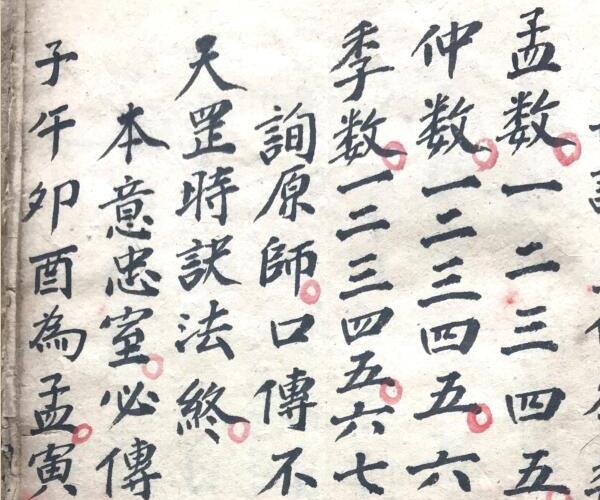 孟数一二三四五
仲数一二三四五六
季数一二三四五六七
詢原師口傳不
天罡時訣法終
本意忠室必傳
子午卯酉為孟寅